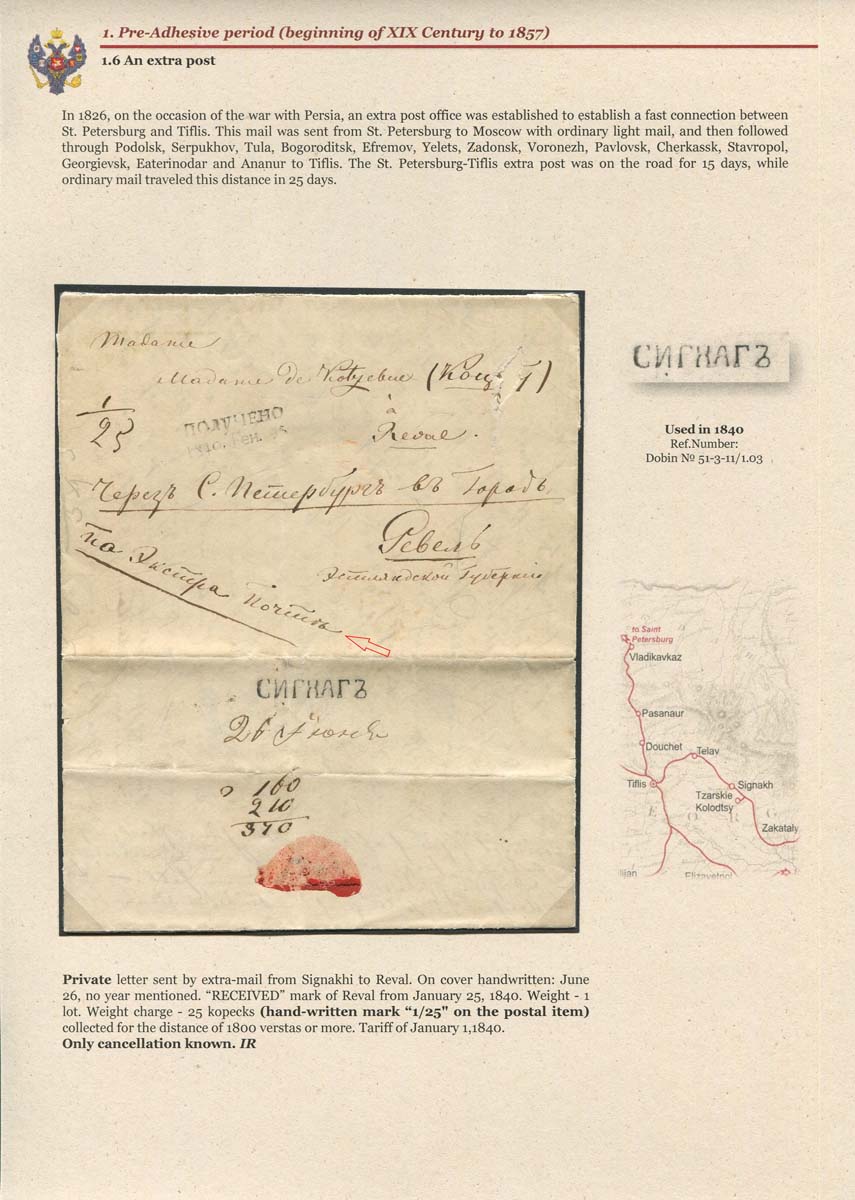 1. Pre-Adhesive period (beginning of XIX Century to 1857)
1.6 An extra post
In 1826, on the occasion of the war with Persia, an extra post office was established to establish a fast connection between
St. Petersburg and Tiflis. This mail was sent from St. Petersburg to Moscow with ordinary light mail, and then followed
through Podolsk, Serpukhov, Tula, Bogoroditsk, Efremov, Yelets, Zadonsk, Voronezh, Pavlovsk, Cherkassk, Stavropol,
Georgievsk, Eaterinodar and Ananur to Tiflis. The St. Petersburg-Tiflis extra post was on the road for 15 days, while
ordinary mail traveled this distance in 25 days.
Madame
Madame de Kotzebue (Коцебу)
1
25
ПОЛУЧЕНО
à
Reval.
Черезъ С. Петербургъ въ Городъ
Ревель
Эстляндской Губернiи
По Экстра Почтѣ
СИГНАГЪ
26 Iюня
160
210
370
СИГНАГЪ
Used in 1840
Ref.Number:
Dobin № 51-3-11/1.03
to Saint
Petersburg
Vladikavkaz
Pasanaur
Douchet
Telav
Tiflis
Signakh
Tzarskie
Kolodtsy
E O R G
Zakataly
Elizavetpol
Private letter sent by extra-mail from Signakhi to Reval. On cover handwritten: June
26, no year mentioned. “RECEIVED” mark of Reval from January 25, 1840. Weight - 1
lot. Weight charge - 25 kopecks (hand-written mark “1/25" on the postal item)
collected for the distance of 1800 verstas or more. Tariff of January 1,1840.
Only cancellation known. IR